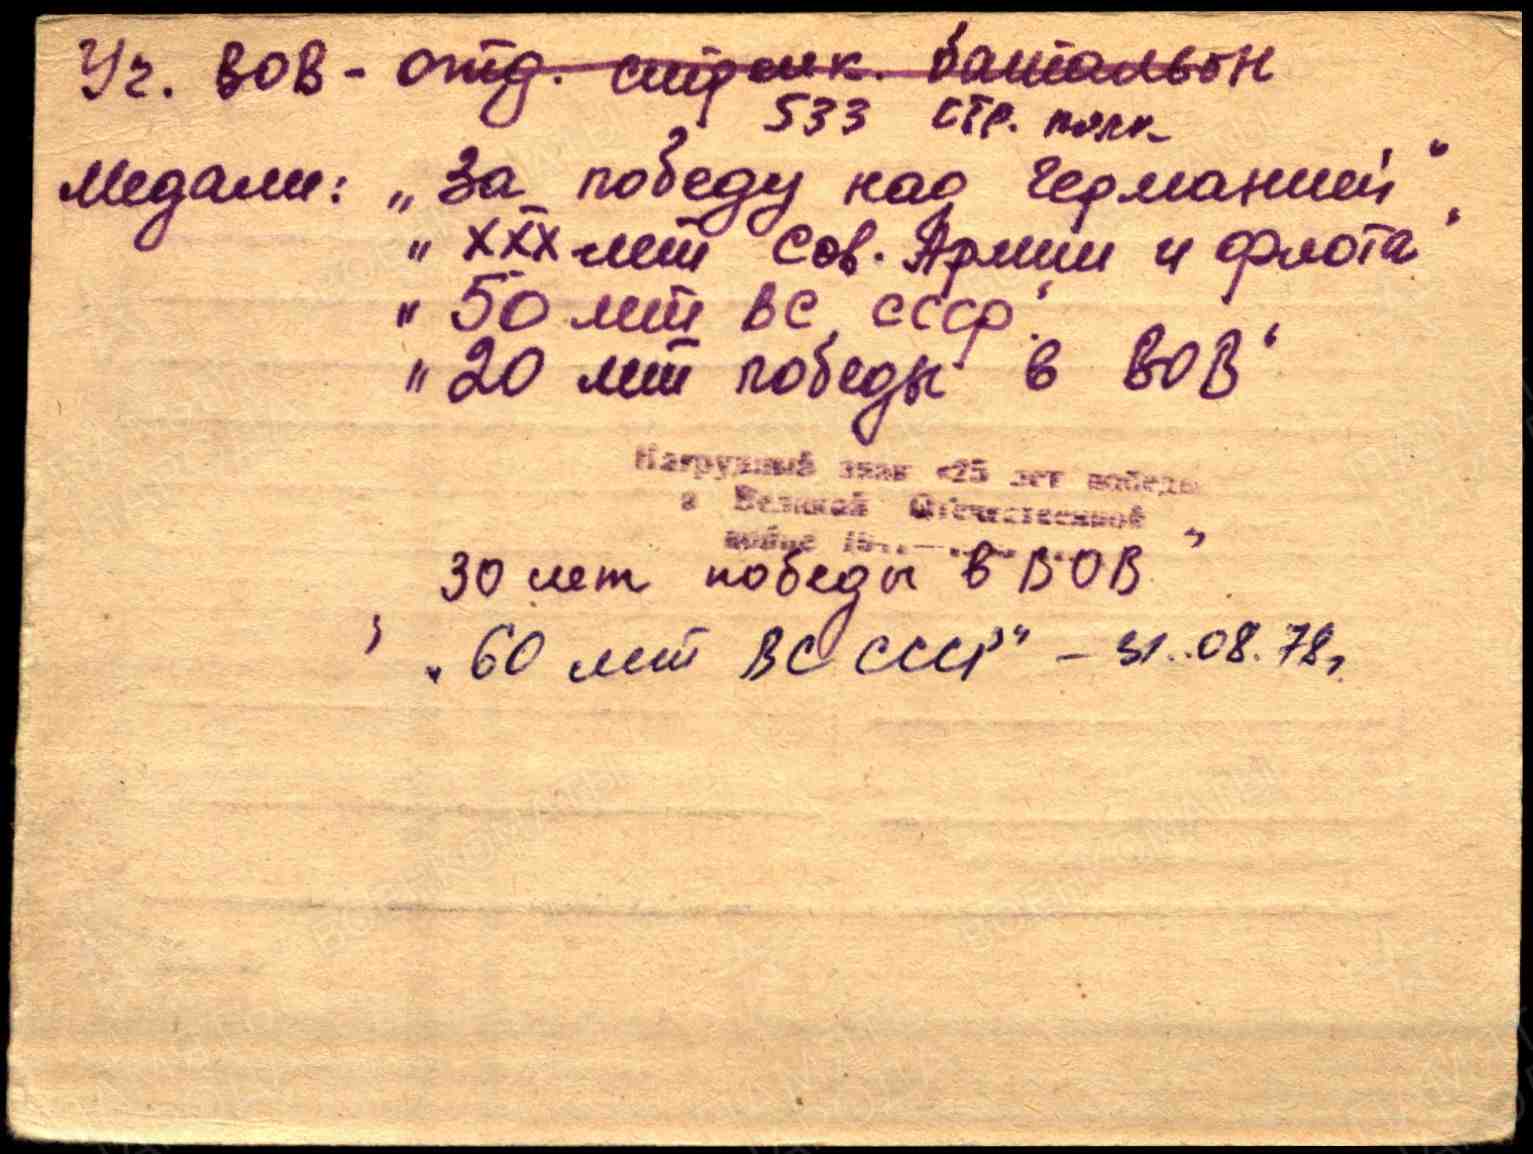 Уч. ВОВ - отд. стрелк. батальон
533 стр. полк
Медали: „За победу над Германией“
„XXX лет Сов. Армии и флота“
„50 лет ВС СССР“
„20 лет победы в ВОВ“
Нагрудный знак «25 лет победы
в Великой Отечественной
войне
30 лет победы в ВОВ"
„60 лет ВС СССР" - 31.08.78г.